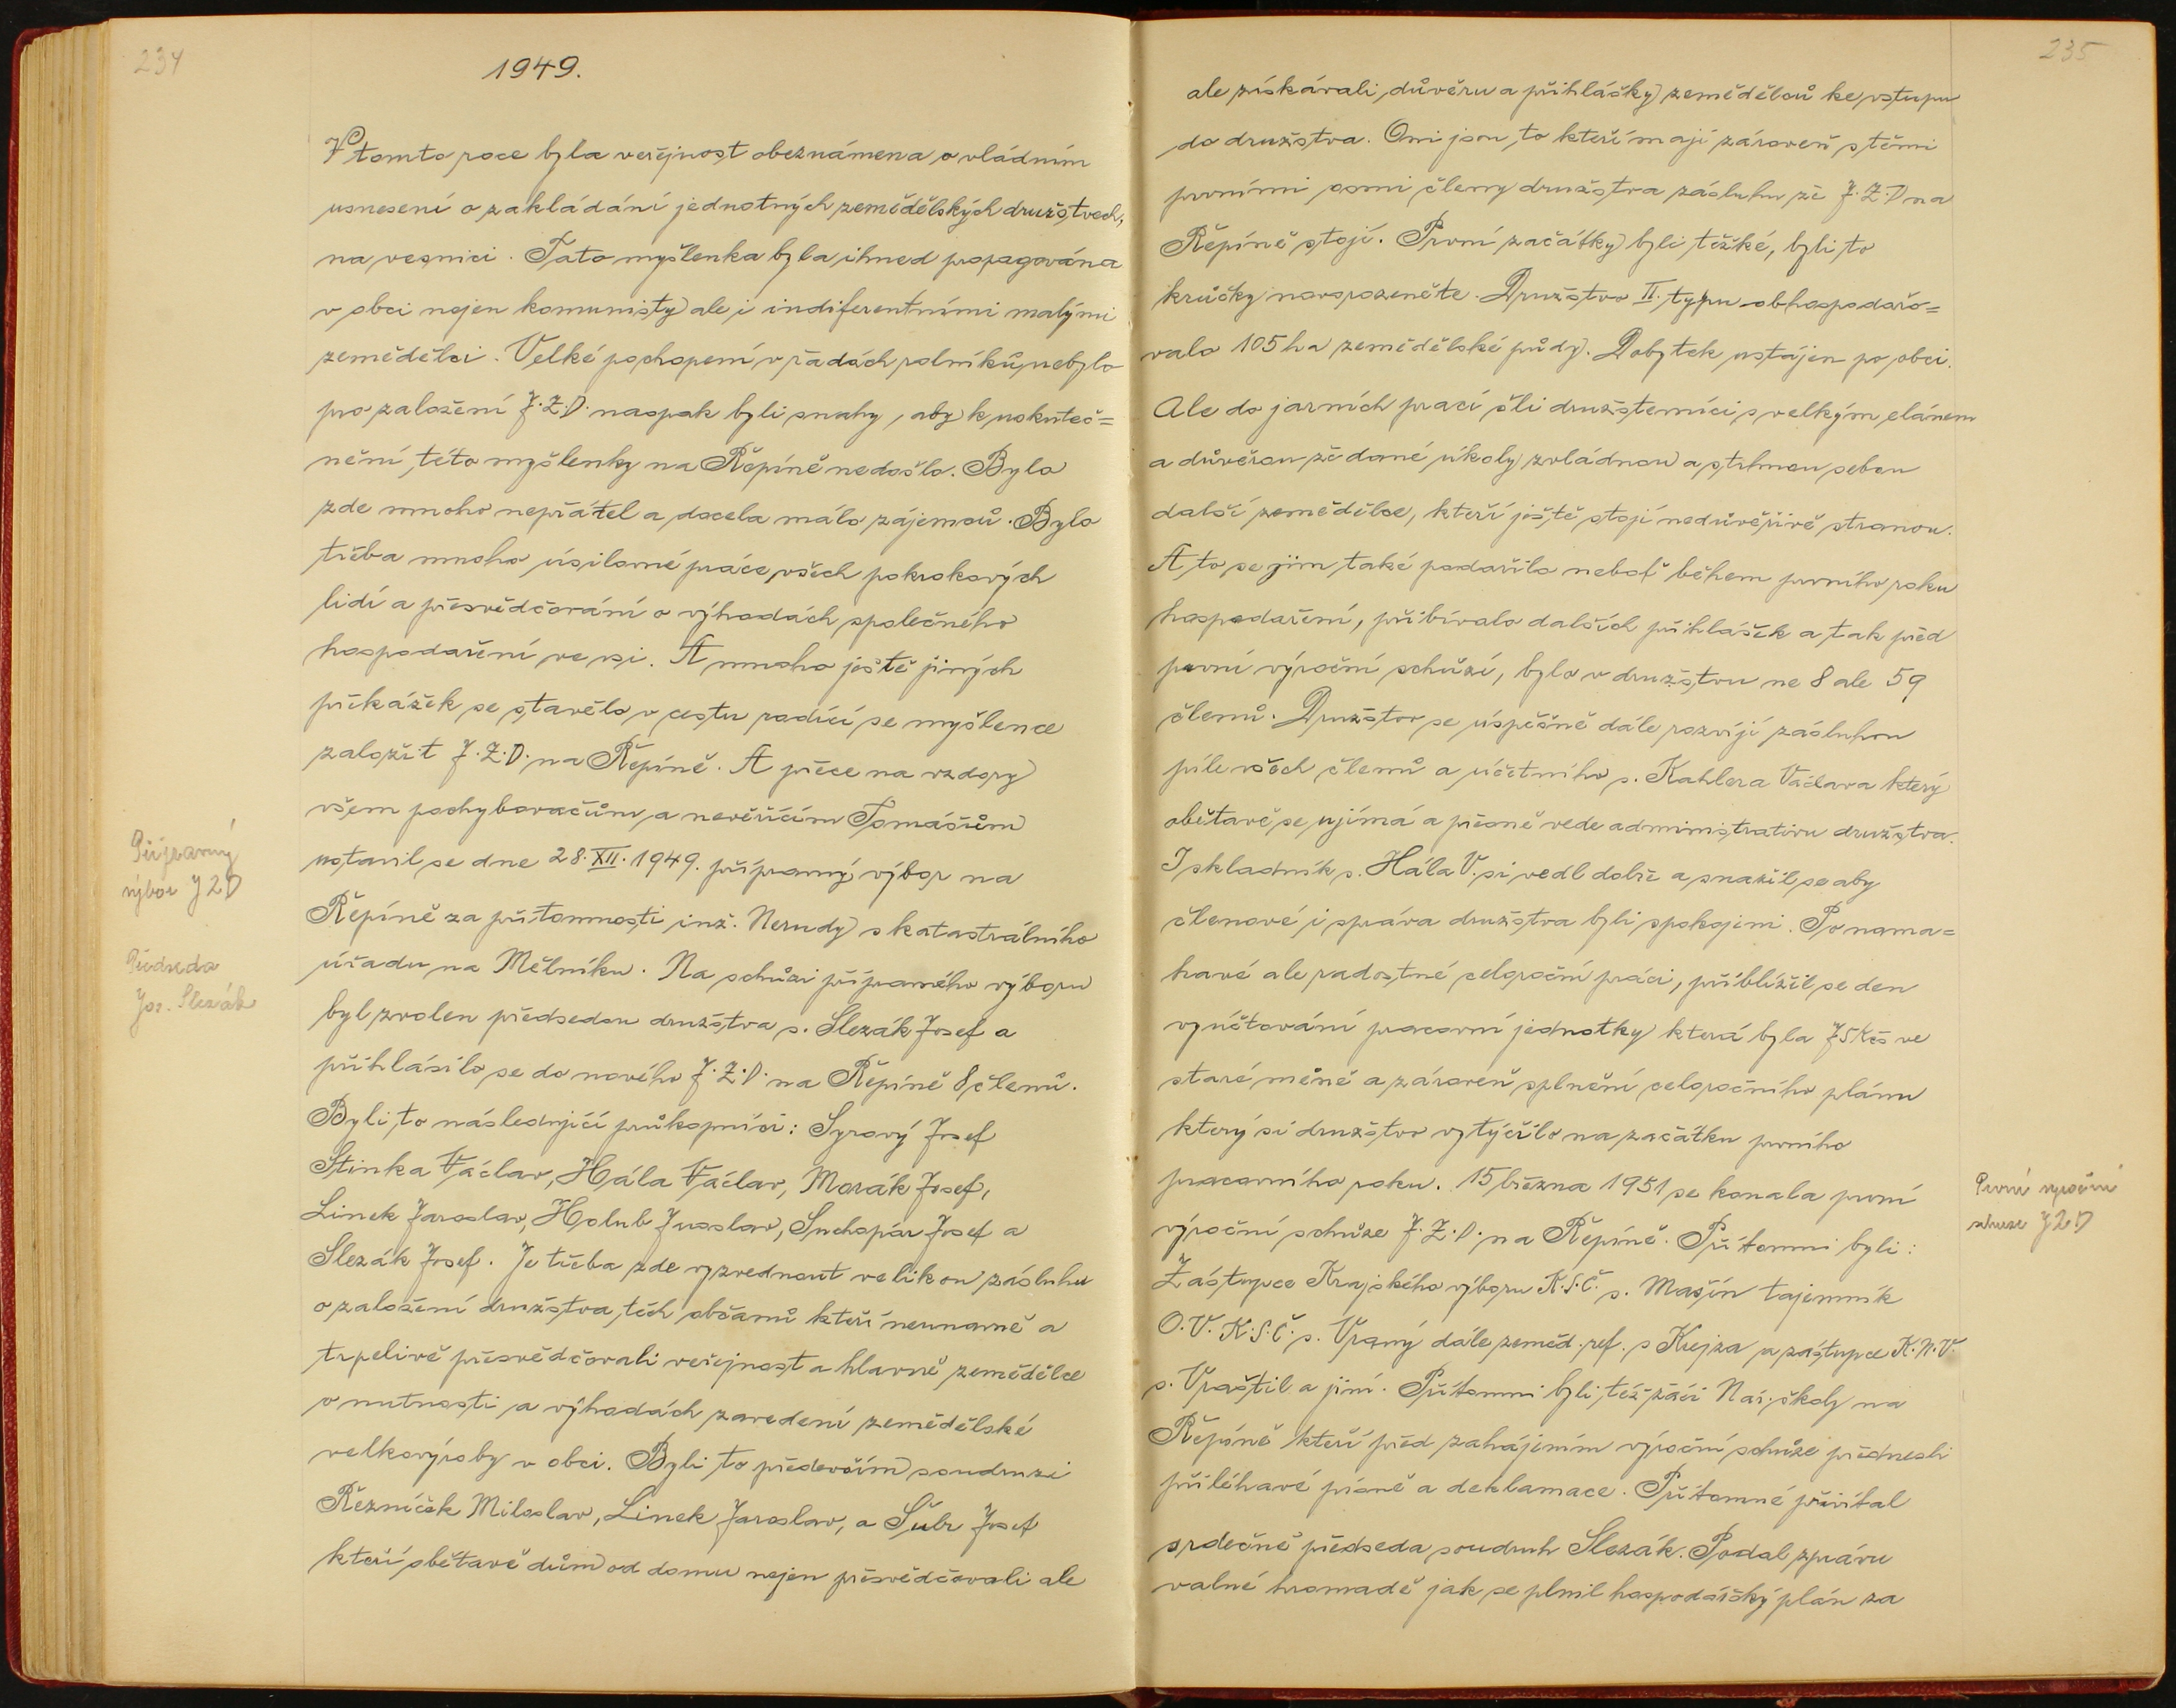 234
1949.
V tomto roce byla veřejnost obeznámena o vládním
usnesení o zakládání jednotných zemědělských družstvech,
na vesnici. Tato myšlenka byla ihned propagována
v obci nejen komunisty ale i indiferentními malými
zemědělci. Velké pochopení v řadách rolníků nebylo
pro založení J.Z.D. naopak byli snahy, aby k uskuteč=
nění této myšlenky na Řepíně nedošlo. Bylo
zde mnoho nepřátel a docela málo zájemců. Bylo
třeba mnoho úsilovné práce všech pokrokových
lidí a přesvědčování o výhodách společného
hospodaření ve vsi. A mnoho ještě jiných
překážek se stavělo v cestu rodící se myšlence
založit J.Z.D. na Řepíně. A přece na vzdory
všem pochybovačům a nevěřícím Tomášům
ustavil se dne 28. XII. 1949. přípravný výbor na
Řepíně za přítomnosti inž. Nerudy s katastrálního
úřadu na Mělníku. Na schůzi přípravného výboru
byl zvolen předsedou družstva s. Slezák Josef a
přihlásilo se do nového J.Z.D. na Řepíně 8 členů.
Byli to následující průkopníci: Syrový Josef
Stinka Václav, Hála Václav, Morák Josef,
Linek Jaroslav, Holub Jaroslav, Suchopár Josef a
Slezák Josef. Je třeba zde vyzvednout velikou zásluhu
o založení družstva, těch občanů kteří neunavně a
trpelivě přesvědčovali veřejnost a hlavně zemědělce
o nutnosti a výhodách zavedení zemědělské
velkovýroby v obci. Byli to především soudruzi
Řezníček Miloslav, Linek Jaroslav, a Šubr Josef
kteří obětavě dům od domu nejen přesvědčovali ale
Přípravný
výbor JZD
Předseda
Jos. Slezák
235
ale získávali důvěru a přihlášky zemědělců ke vstupu
do družstva. Oni jsou to kteří mají zároveň s těmi
prvními osmi členy družstva zásluhu že J.Z.D na
Řepíně stojí. První začátky byli těžké, byli to
krůčky novorozeněte. Družstvo II. typu obhospodařo=
valo 105 ha zemědělské půdy. Dobytek ustájen po obci.
Ale do jarních prací šli družstevníci s velkým elánem
a důvěrou že dané úkoly zvládnou a strhnou sebou
další zemědělce, kteří ještě stojí nedůvěřivě stranou.
A to se jim také podařilo neboť během prvního roku
hospodaření, přibívalo dalších přihlášek a tak před
první výroční schůzí, bylo v družstvu ne 8 ale 59
členů. Družstvo se úspěšně dále rozvíjí zásluhou
píle všech členů a účetního s. Kahlera Václava který
obětavě se ujímá a přesně vede administrativu družstva.
I skladník s. Hála V. si vedl dobře a snažil se aby
členové i správa družstva byli spokojeni. Po nama=
havé ale radostné celoroční práci, přiblížil se den
vyúčtování pracovní jednotky která byla 75 Kčs ve
staré měně a zároveň splnění celoročního plánu
který si družstvo vytýčilo na začátku prvního
pracovního roku. 15 března 1951 se konala první
výroční schůze J.Z.D. na Řepíně. Přítomni byli:
Zástupce Krajského výboru K.S.Č. s. Mašín tajemník
O.V.K.S.Č. s. Vraný dále zeměd. ref. s Krejza a zástupce K.N.V.
s. Vraštil a jiní. Přítomni byli též žáci Nár. školy na
Řepíně kteří před zahájením výroční schůze přednesli
přiléhavé písně a deklamace. Přítomné přivítal
srdečně předseda soudruh Slezák. Podal zprávu
valné hromadě jak se plnil hospodářský plán za
První výroční
schuze JZD